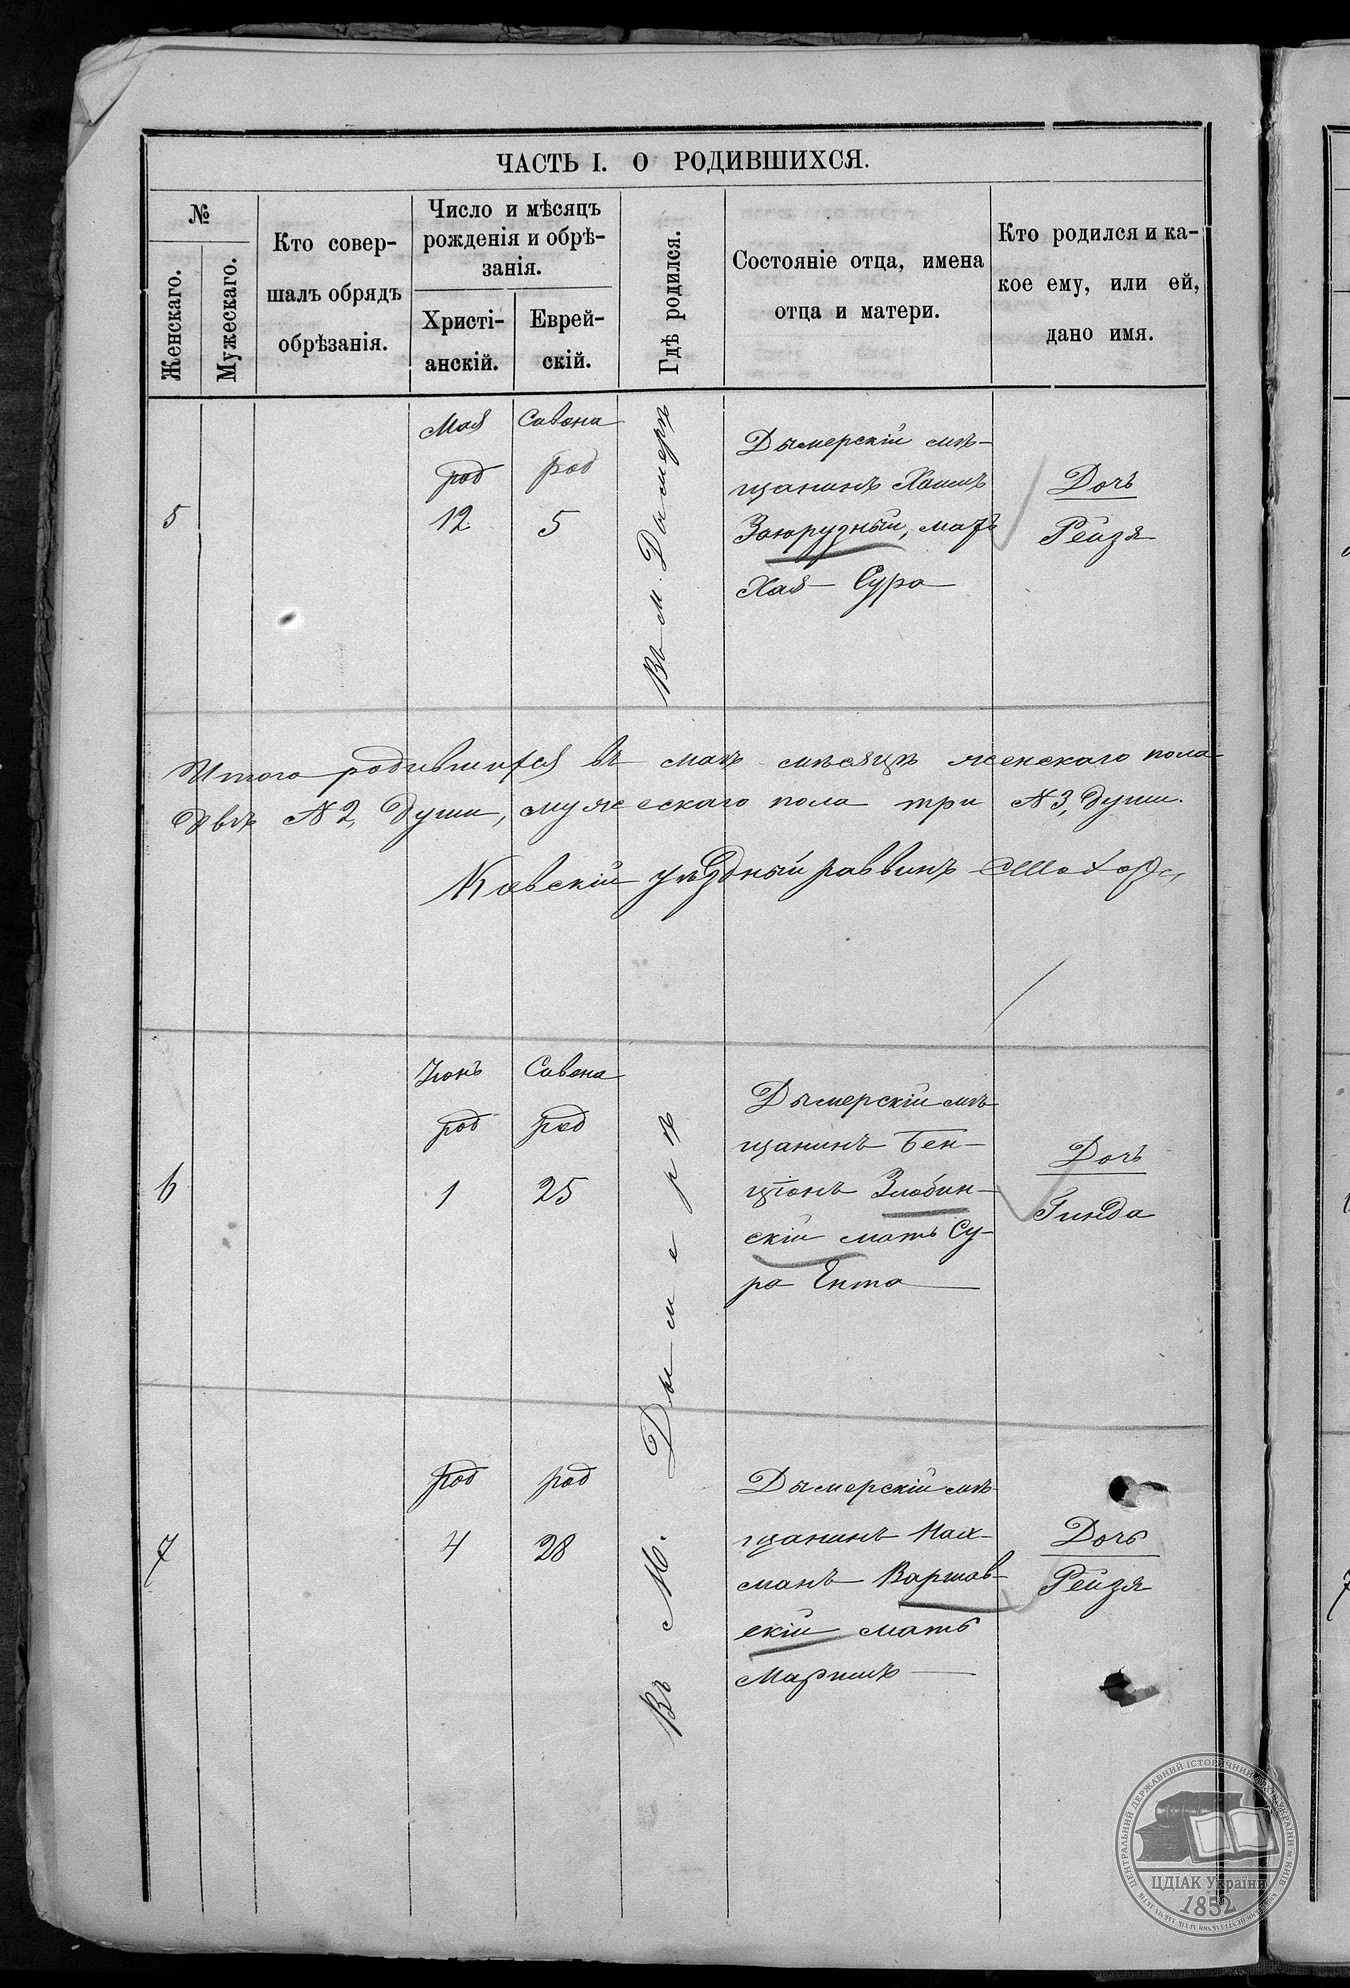 ЧАСТЬ I. О РОДИВШИХСЯ.
№
Женскаго.
Мужескаго.
Кто совер-
шалъ обрядъ
обрѣзанія.
Число и мѣсяцъ
рожденія и обрѣ-
занія.
Христі-
анскій.
Еврей-
скій.
Гдѣ родился.
Состояніе отца, имена
отца и матери.
Кто родился и ка-
кое ему, или ей,
дано имя.
5
Мая
род
12
Сивона
род
5
Въ м. Дымерѣ
Дымерскій мѣ-
щанинъ Хаимъ
мать
Хая - Сура
Дочь
Рейзя
Итого родившихся въ маѣ мѣсяцѣ женскаго пола
двѣ № 2, души, мужескаго пола три № 3, души.
Кіевскій уѣздный раввинъ
6
Іюнь
род
1
Сивона
род
25
Въ М. Дымерѣ
Дымерскій мѣ-
щанинъ Бен-
ціонъ Злобин-
скій мать Су-
ра Ента
Дочь
Гинда
7
род
4
род
28
Дымерскій мѣ-
щанинъ Нах-
манъ Варшав-
скій мать
Дочь
Рейзя
ЦДІАК України
1852